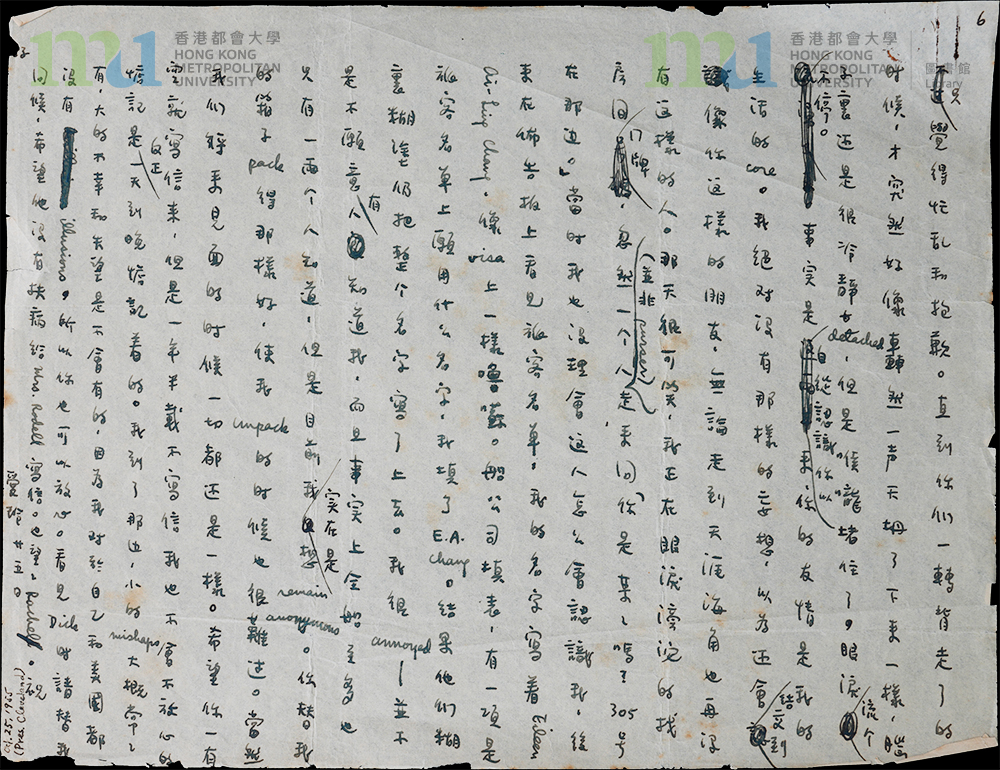 6
香港都會大學
HONG KONG
METROPOLITAN
UNIVERSITY
香港都會大學
HONG KONG
METROPOLITAN
UNIVERSITY
圖書館
Library
只覺得忙乱和抱歉。直到你們一轉背走了的
時候,才突然好像轟然一声天坍了下来一樣,腦
子裏还是很冷静&detached,但是喉嚨堵住了,眼淚流个
不停。事实是自從認識你以来你的友情是我的
生活的core。我絕对没有那樣的妄想,以為还會結交到
像你这樣的朋友,無論走到天涯海角也再没
有这樣的人。那天很可笑,我正在眼淚滂沱的找
房间门牌,忽然一个人(並非purser)走来问「你是某某嗎?305号
在那边。」當时我也没理會这人怎么會認識我,後
来在佈告板上看見旅客名单,我的名字寫着Eileen
Ai-ling Chang,像visa上一樣嚕囌。船公司填表,有一項是
旅客名单上願用什么名字,我填了E.A. Chang。結果他們糊
裏糊塗仍把整个名字寫了上去。我很annoyed——並不
是不願意有人知道我,而且事实上全船至多也
只有一兩个人知道,但是目前我实在是想remain anonymous。你替我
的箱子pack得那樣好,使我unpack的时候也很難过。當然
我們將来見面的时候一切都还是一樣。希望你一有
空就寫信来,但是一年半載不寫信我也不會不放心的。
惦記是反正一天到晚惦記着的。我到了那边,小的mishaps大概常常
有,大的不幸和失望是不會有的,因為我对於自己和美國都
没有illusions,所以你也可以放心。看見Dick时請替我
问候,希望他没有扶病給Mrs. Rodell寫信。也望望Rachel。祝
愛玲 廿五日
Oct. 25, 1955
(Pres. Cleveland)